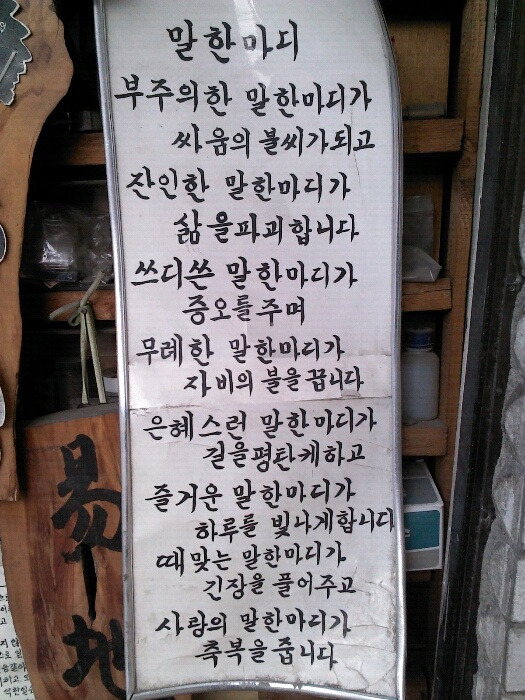 말한마디
부주의한 말한마디가
싸움의 불씨가되고
잔인한 말한마디가
삶을파괴합니다
쓰디쓴 말한마디가
증오를주며
무레한 말한마디가
자비의 불을 끕니다
은혜스런 말한마디가
길을평탄케하고
즐거운 말한마디가
하루를 빛나게합니다
때맞는 말한마디가
긴장을 풀어주고
사랑의 말한마디가
축복을 줍니다
易
地